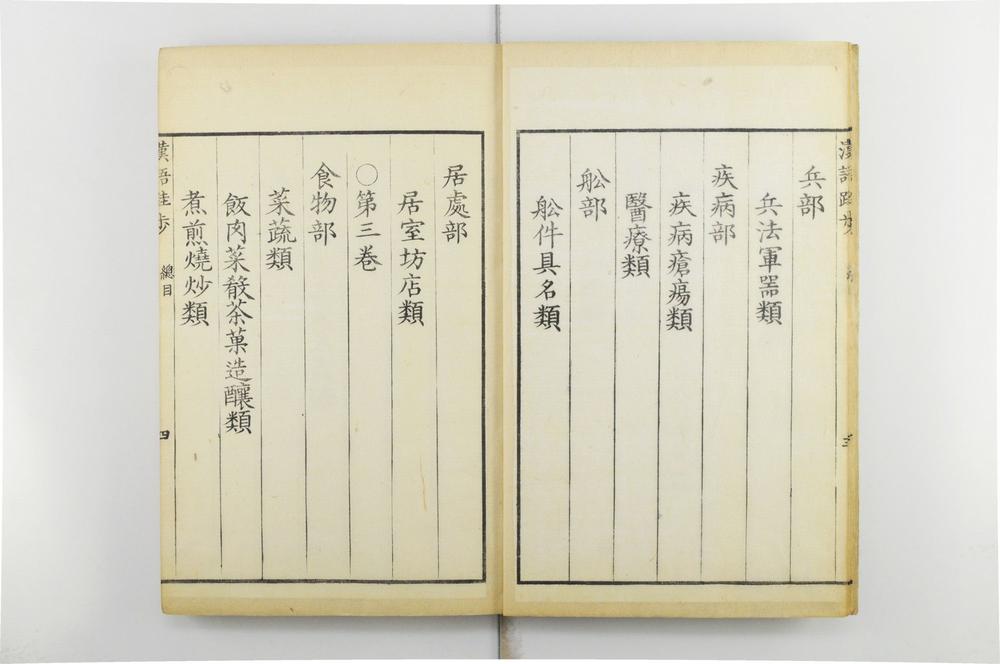 漢語跬步
三
兵部
兵法軍噐類
疾病部
疾病瘡瘍類
醫療類
舩部
舩件具名類
居處部
居室坊店類
○第三卷
食物部
菜蔬類
飯肉菜殽茶菓造釀類
煮煎燒炒類
漢語跬步
總目
四